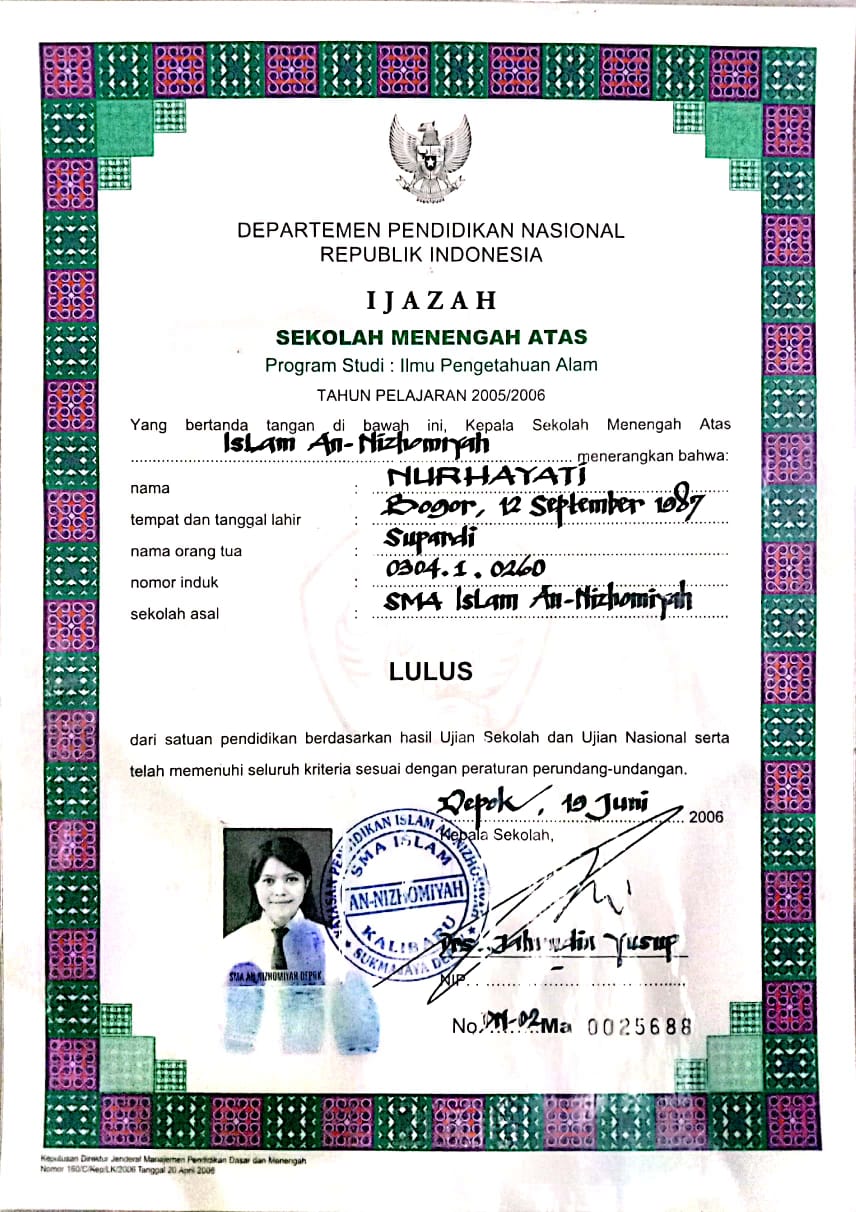 DEPARTEMEN PENDIDIKAN NASIONAL
REPUBLIK INDONESIA
IJAZAH
SEKOLAH MENENGAH ATAS
Program Studi : Ilmu Pengetahuan Alam
TAHUN PELAJARAN 2005/2006
Yang bertanda tangan di bawah ini, Kepala Sekolah Menengah Atas
Islam An-Nizhomiyah menerangkan bahwa:
nama : NURHAYATI
tempat dan tanggal lahir : Bogor, 12 September 1987
nama orang tua : Supandi
nomor induk : 0304.1.0260
sekolah asal : SMA Islam An-Nizhomiyah
LULUS
dari satuan pendidikan berdasarkan hasil Ujian Sekolah dan Ujian Nasional serta
telah memenuhi seluruh kriteria sesuai dengan peraturan perundang-undangan.
Depok, 19 Juni 2006
Kepala Sekolah,
YAYASAN PENDIDIKAN ISLAM ANNIZHOMIYAH
SMA ISLAM
AN-NIZHOMIYAH
KALIBARU
SUKMAJAYA DEPOK
SMA AN NIZHOMIYAH DEPOK
Drs. Yusup
NIP. -
No. Ma 0025688
Keputusan Direktur Jenderal Manajemen Pendidikan Dasar dan Menengah
Nomor 160/C/Kep/LK/2006 Tanggal 20 April 2006